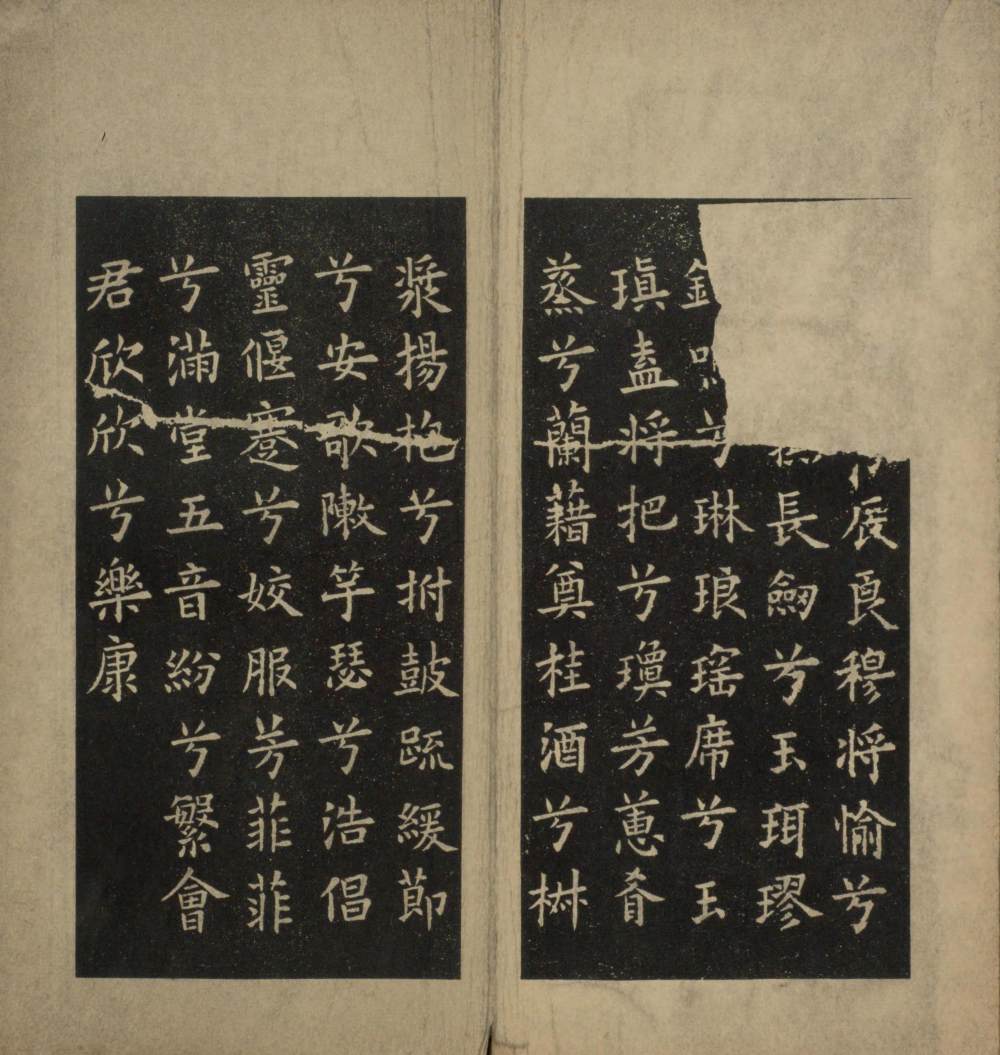 辰良穆將愉兮
長劒兮玉珥璆
兮琳琅瑤席兮玉
瑱盍將把兮瓊芳蕙肴
蒸兮蘭藉奠桂酒兮椒
漿揚枹兮拊鼓疏緩節
兮安歌陳竽瑟兮浩倡
靈偃蹇兮姣服芳菲菲
兮滿堂五音紛兮繁會
君欣欣兮樂康